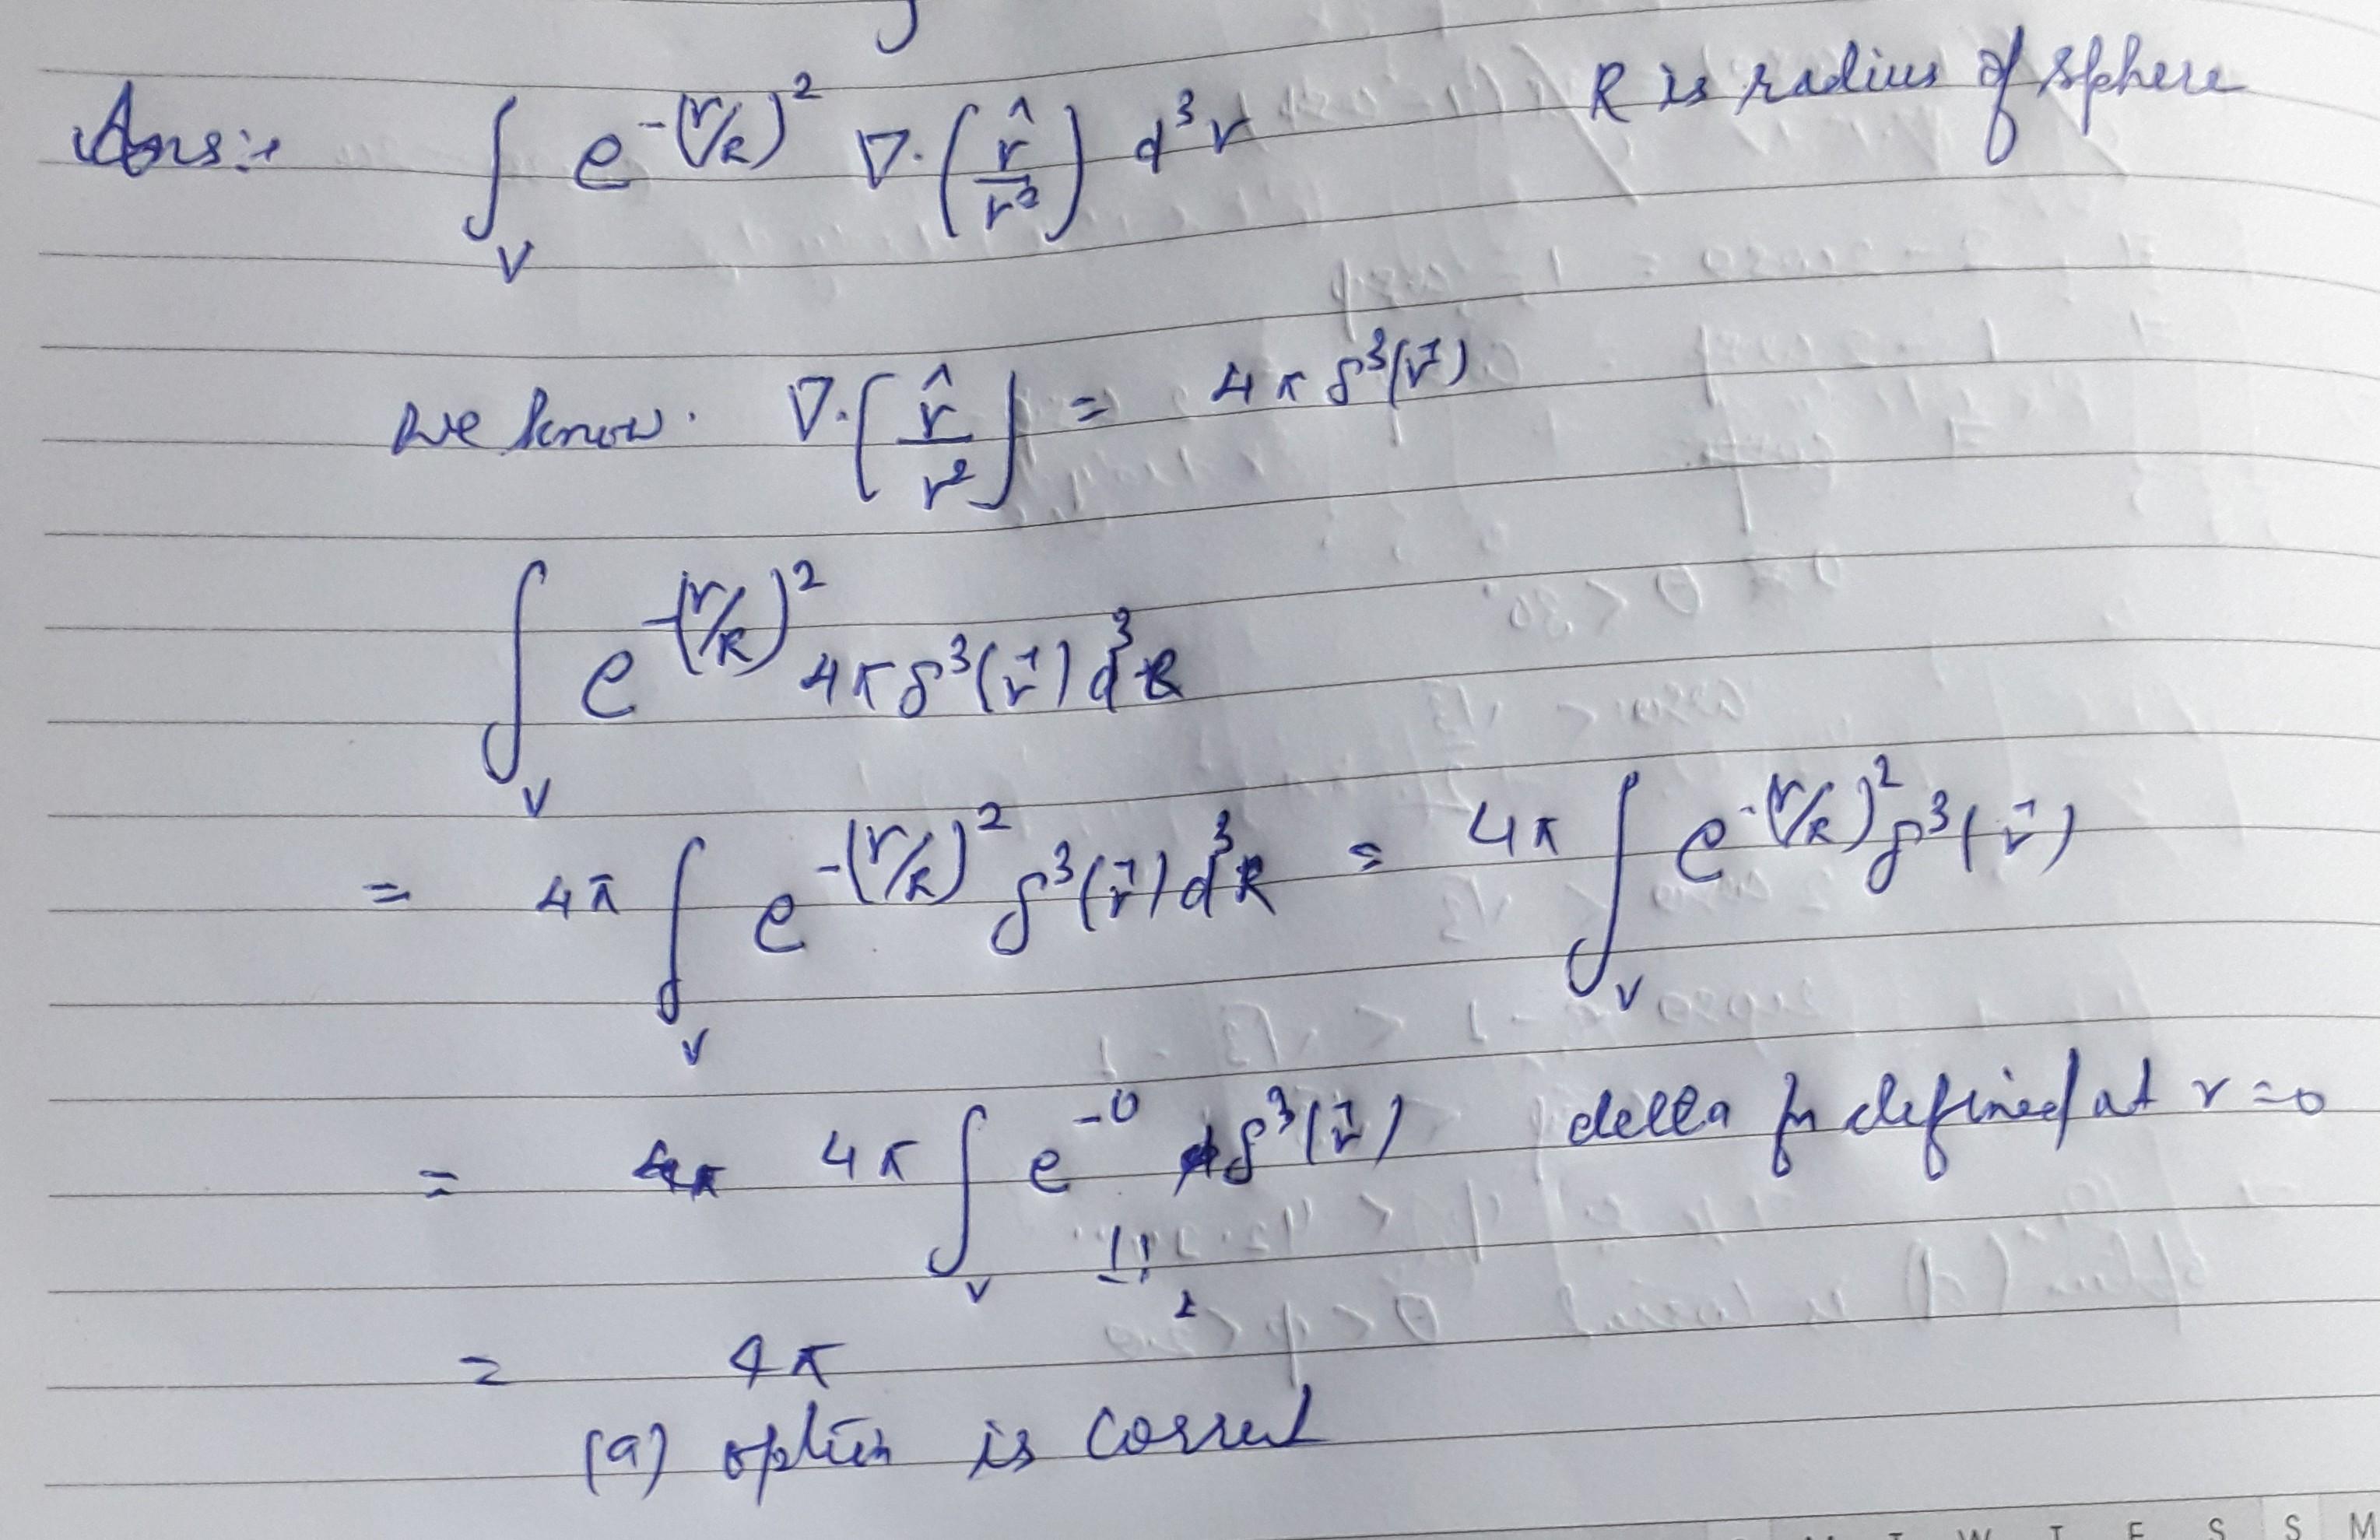 Ans:→ ∫_V e^{-(r/R)^2} ∇·(r̂/r²) d³r R is radius of sphere
we know. ∇·(r̂/r²) = 4π δ³(r⃗)
∫_V e^{-(r/R)^2} 4π δ³(r⃗) d³R
= 4π ∫_V e^{-(r/R)^2} δ³(r⃗) d³R = 4π ∫_V e^{-(r/R)^2} δ³(r⃗)
= 4π ∫_V e^{-0} δ³(r⃗) delta fn defined at r=0
1
= 4π
(a) option is correct
M T W T F S S M